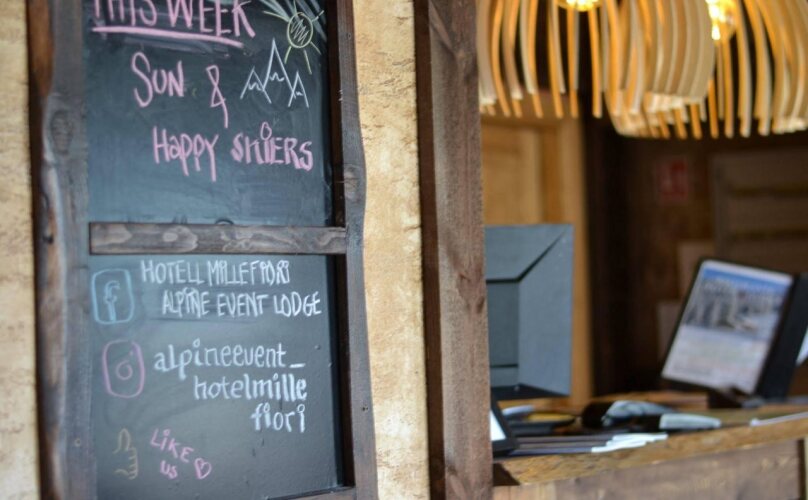 THIS WEEK
SUN &
HAPPY SKIERS
HOTELL MILLEFIORI
ALPINE EVENT LODGE
alpineevent_
hotelmille
fiori
LIKE
us